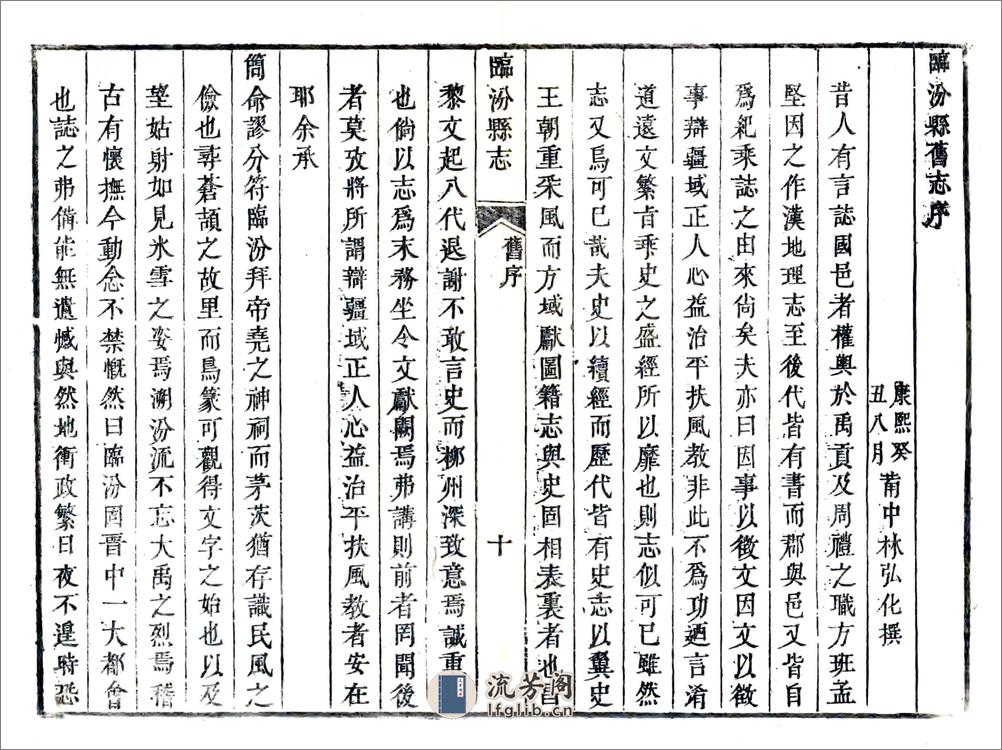 臨汾縣舊志序
康熙癸丑八月 莆中林弘化撰
昔人有言誌國邑者權輿於禹貢及周禮之職方班孟
堅因之作漢地理志至後代皆有書而郡與邑又皆自
為紀乘誌之由來尙矣夫亦曰因事以徵文因文以徵
事辯疆域正人心益治平扶風教非此不為功廼言淆
道遠文繁旨乖史之盛經所以靡也則志似可已雖然
志又烏可已哉夫史以續經而歷代皆有史志以翼史
王朝重采風而方域獻圖籍志與史固相表裏者也昔
臨汾縣志 舊序 十
黎文起八代退謝不敢言史而柳州深致意焉誠重
也倘以志為末務坐令文獻闕焉弗講則前者罔聞後
者莫攷將所謂辯疆域正人心益治平扶風教者安在
耶余承
簡命謬分符臨汾拜帝堯之神祠而茅茨猶存識民風之
儉也尋蒼頡之故里而鳥篆可觀得文字之始也以及
望姑射如見氷雪之姿焉溯汾流不忘大禹之烈焉稽
古有懷撫今動念不禁慨然曰臨汾固晋中一大都會
也誌之弗備能無遺憾與然地衝政繁日夜不遑時恐
流芳阁
lfglib.cn